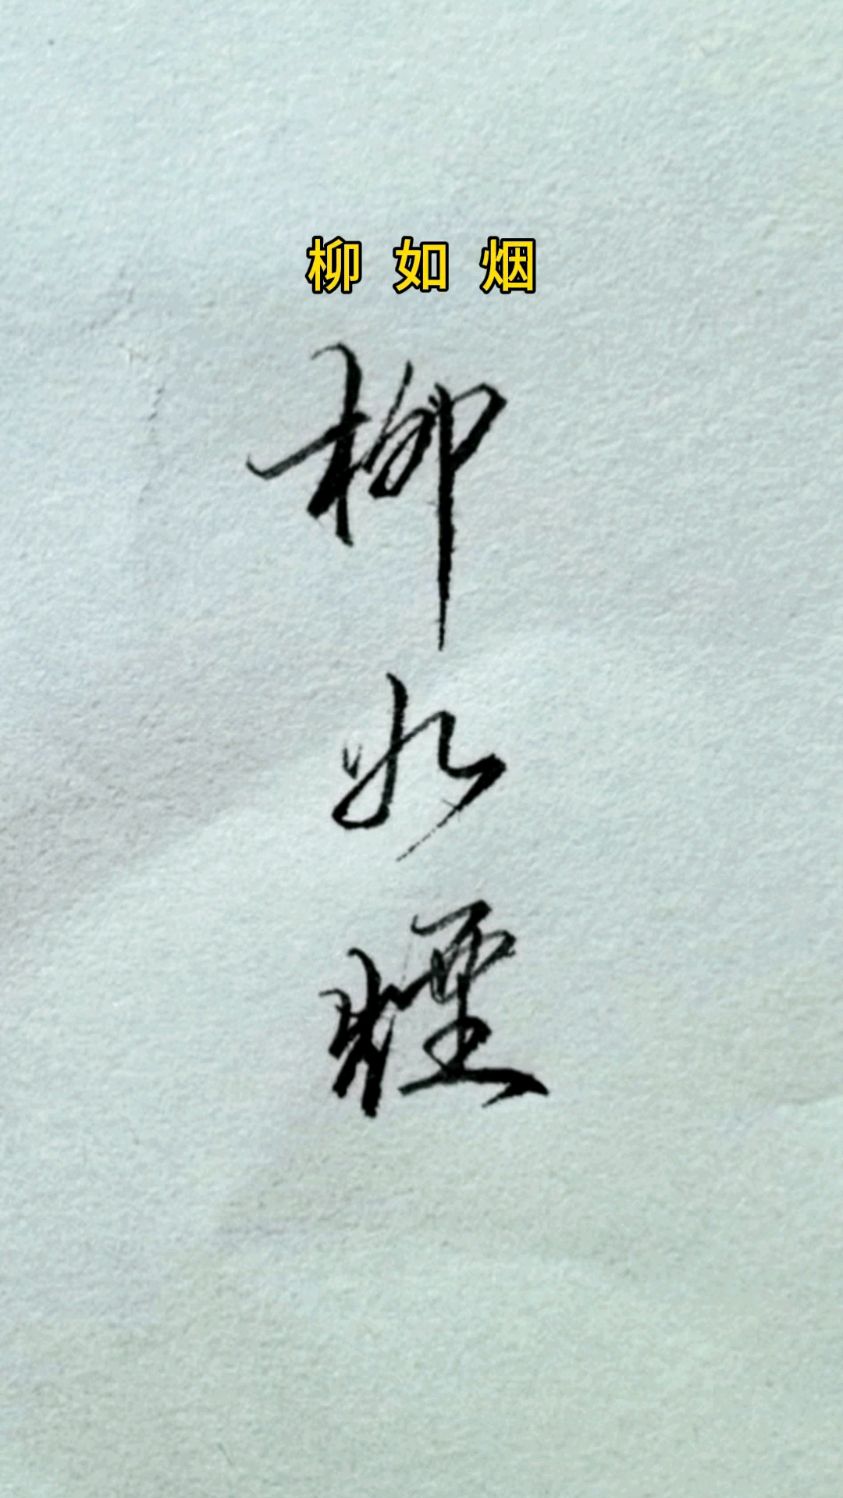 柳 如 烟
柳
如
煙